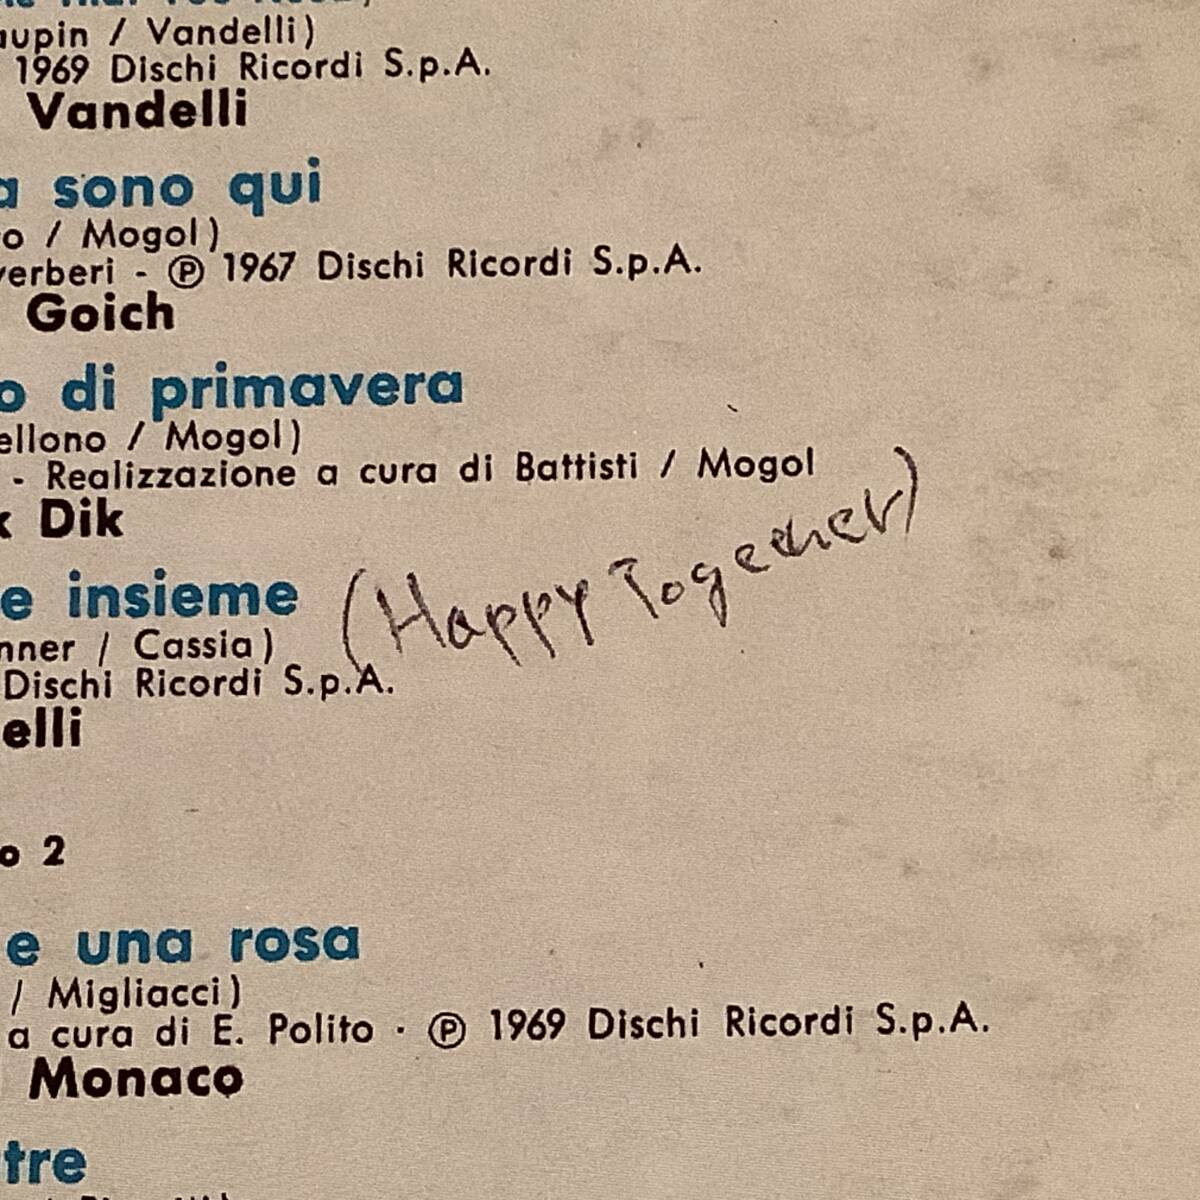 aupin / Vandelli)
1969 Dischi Ricordi S.p.A.
Vandelli
a sono qui
o / Mogol)
verberi - ℗ 1967 Dischi Ricordi S.p.A.
Goich
o di primavera
ellono / Mogol)
- Realizzazione a cura di Battisti / Mogol
k Dik
e insieme (Happy Together)
nner / Cassia)
Dischi Ricordi S.p.A.
elli
o 2
e una rosa
/ Migliacci)
a cura di E. Polito · ℗ 1969 Dischi Ricordi S.p.A.
Monaco
tre